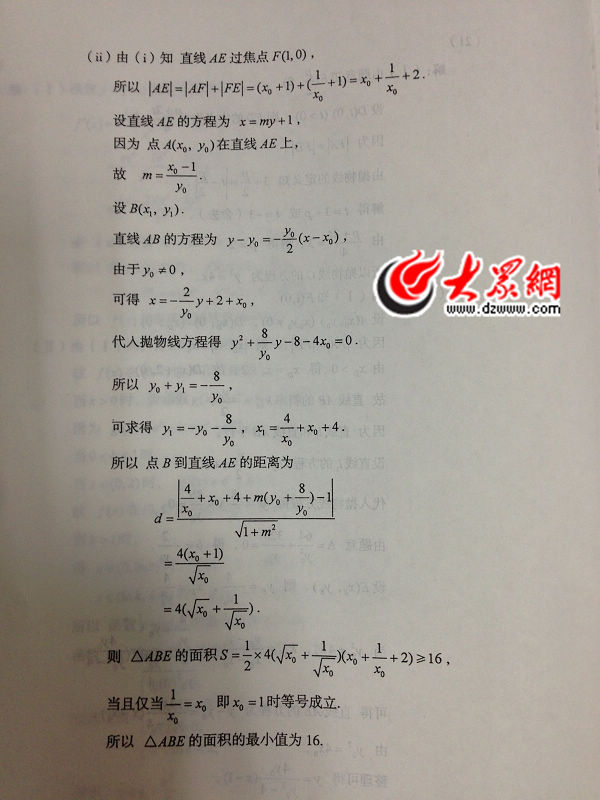 (ii) 由 (i) 知 直线 AE 过焦点 F(1,0),
所以 |AE|=|AF|+|FE|=(x₀+1)+(1/x₀+1)=x₀+1/x₀+2.
设直线 AE 的方程为 x=my+1,
因为 点 A(x₀, y₀) 在直线 AE 上,
故 m=(x₀-1)/y₀.
设 B(x₁, y₁).
直线 AB 的方程为 y-y₀=-(y₀/2)(x-x₀),
由于 y₀≠0,
可得 x=-(2/y₀)y+2+x₀,
大眾網
www.dzwww.com
代入抛物线方程得 y²+(8/y₀)y-8-4x₀=0.
所以 y₀+y₁=-8/y₀,
可求得 y₁=-y₀-8/y₀, x₁=4/x₀+x₀+4.
所以 点 B 到直线 AE 的距离为
d=|4/x₀+x₀+4+m(y₀+8/y₀)-1|/√(1+m²)
=4(x₀+1)/√x₀
=4(√x₀+1/√x₀).
则 △ABE 的面积 S=1/2×4(√x₀+1/√x₀)(x₀+1/x₀+2)≥16,
当且仅当 1/x₀=x₀ 即 x₀=1 时等号成立.
所以 △ABE 的面积的最小值为 16.